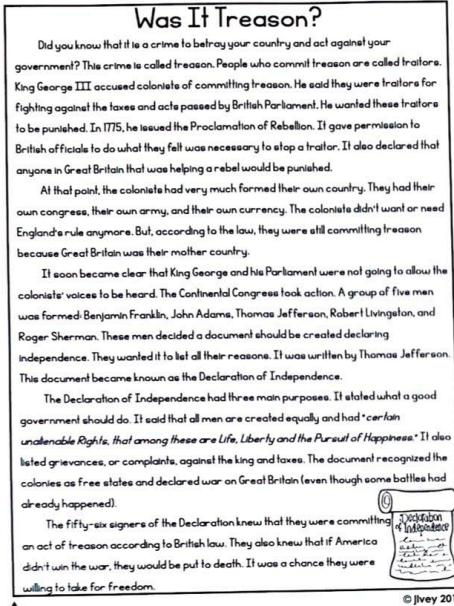 Was It Treason?
Did you know that it is a crime to betray your country and act against your
government? This crime is called treason. People who commit treason are called traitors.
King George III accused colonists of committing treason. He said they were traitors for
fighting against the taxes and acts passed by British Parliament. He wanted these traitors
to be punished. In 1775, he issued the Proclamation of Rebellion. It gave permission to
British officials to do what they felt was necessary to stop a traitor. It also declared that
anyone in Great Britain that was helping a rebel would be punished.
At that point, the colonists had very much formed their own country. They had their
own congress, their own army, and their own currency. The colonists didn't want or need
England's rule anymore. But, according to the law, they were still committing treason
because Great Britain was their mother country.
It soon became clear that King George and his Parliament were not going to allow the
colonists' voices to be heard. The Continental Congress took action. A group of five men
was formed: Benjamin Franklin, John Adams, Thomas Jefferson, Robert Livingston, and
Roger Sherman. These men decided a document should be created declaring
independence. They wanted it to list all their reasons. It was written by Thomas Jefferson.
This document became known as the Declaration of Independence.
The Declaration of Independence had three main purposes. It stated what a good
government should do. It said that all men are created equally and had "certain
unalienable Rights, that among these are Life, Liberty and the Pursuit of Happiness." It also
listed grievances, or complaints, against the king and taxes. The document recognized the
colonies as free states and declared war on Great Britain (even though some battles had
already happened).
The fifty-six signers of the Declaration knew that they were committing
an act of treason according to British law. They also knew that if America
didn't win the war, they would be put to death. It was a chance they were
willing to take for freedom.
Declaration
of Independence
© jivey